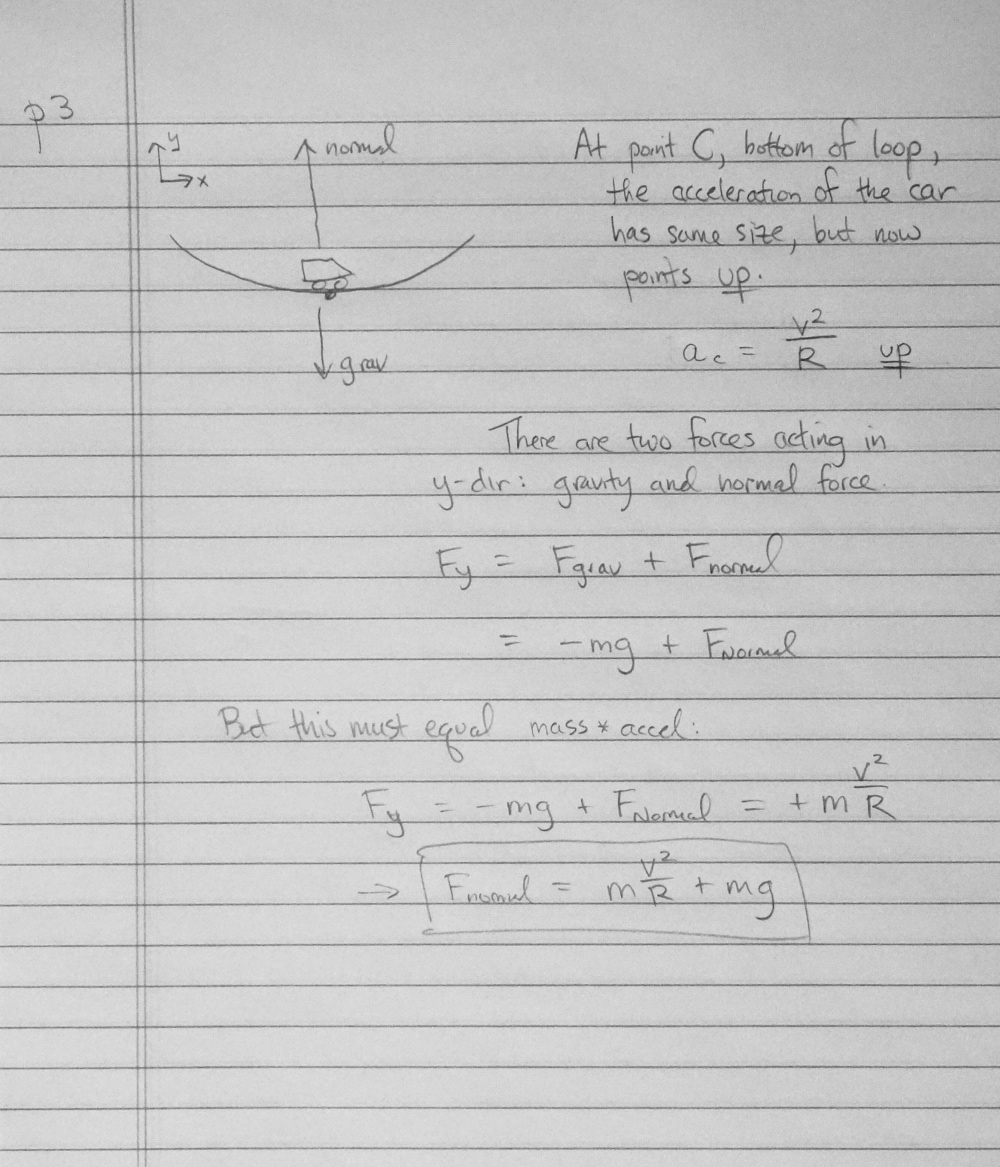 p3
y
x
normal
grav
At point C, bottom of loop,
the acceleration of the car
has same size, but now
points up.
a_c = v²/R up
There are two forces acting in
y-dir: gravity and normal force.
F_y = F_grav + F_normal
= -mg + F_Normal
But this must equal mass * accel:
F_y = -mg + F_Normal = +m v²/R
→ F_normal = m v²/R + mg